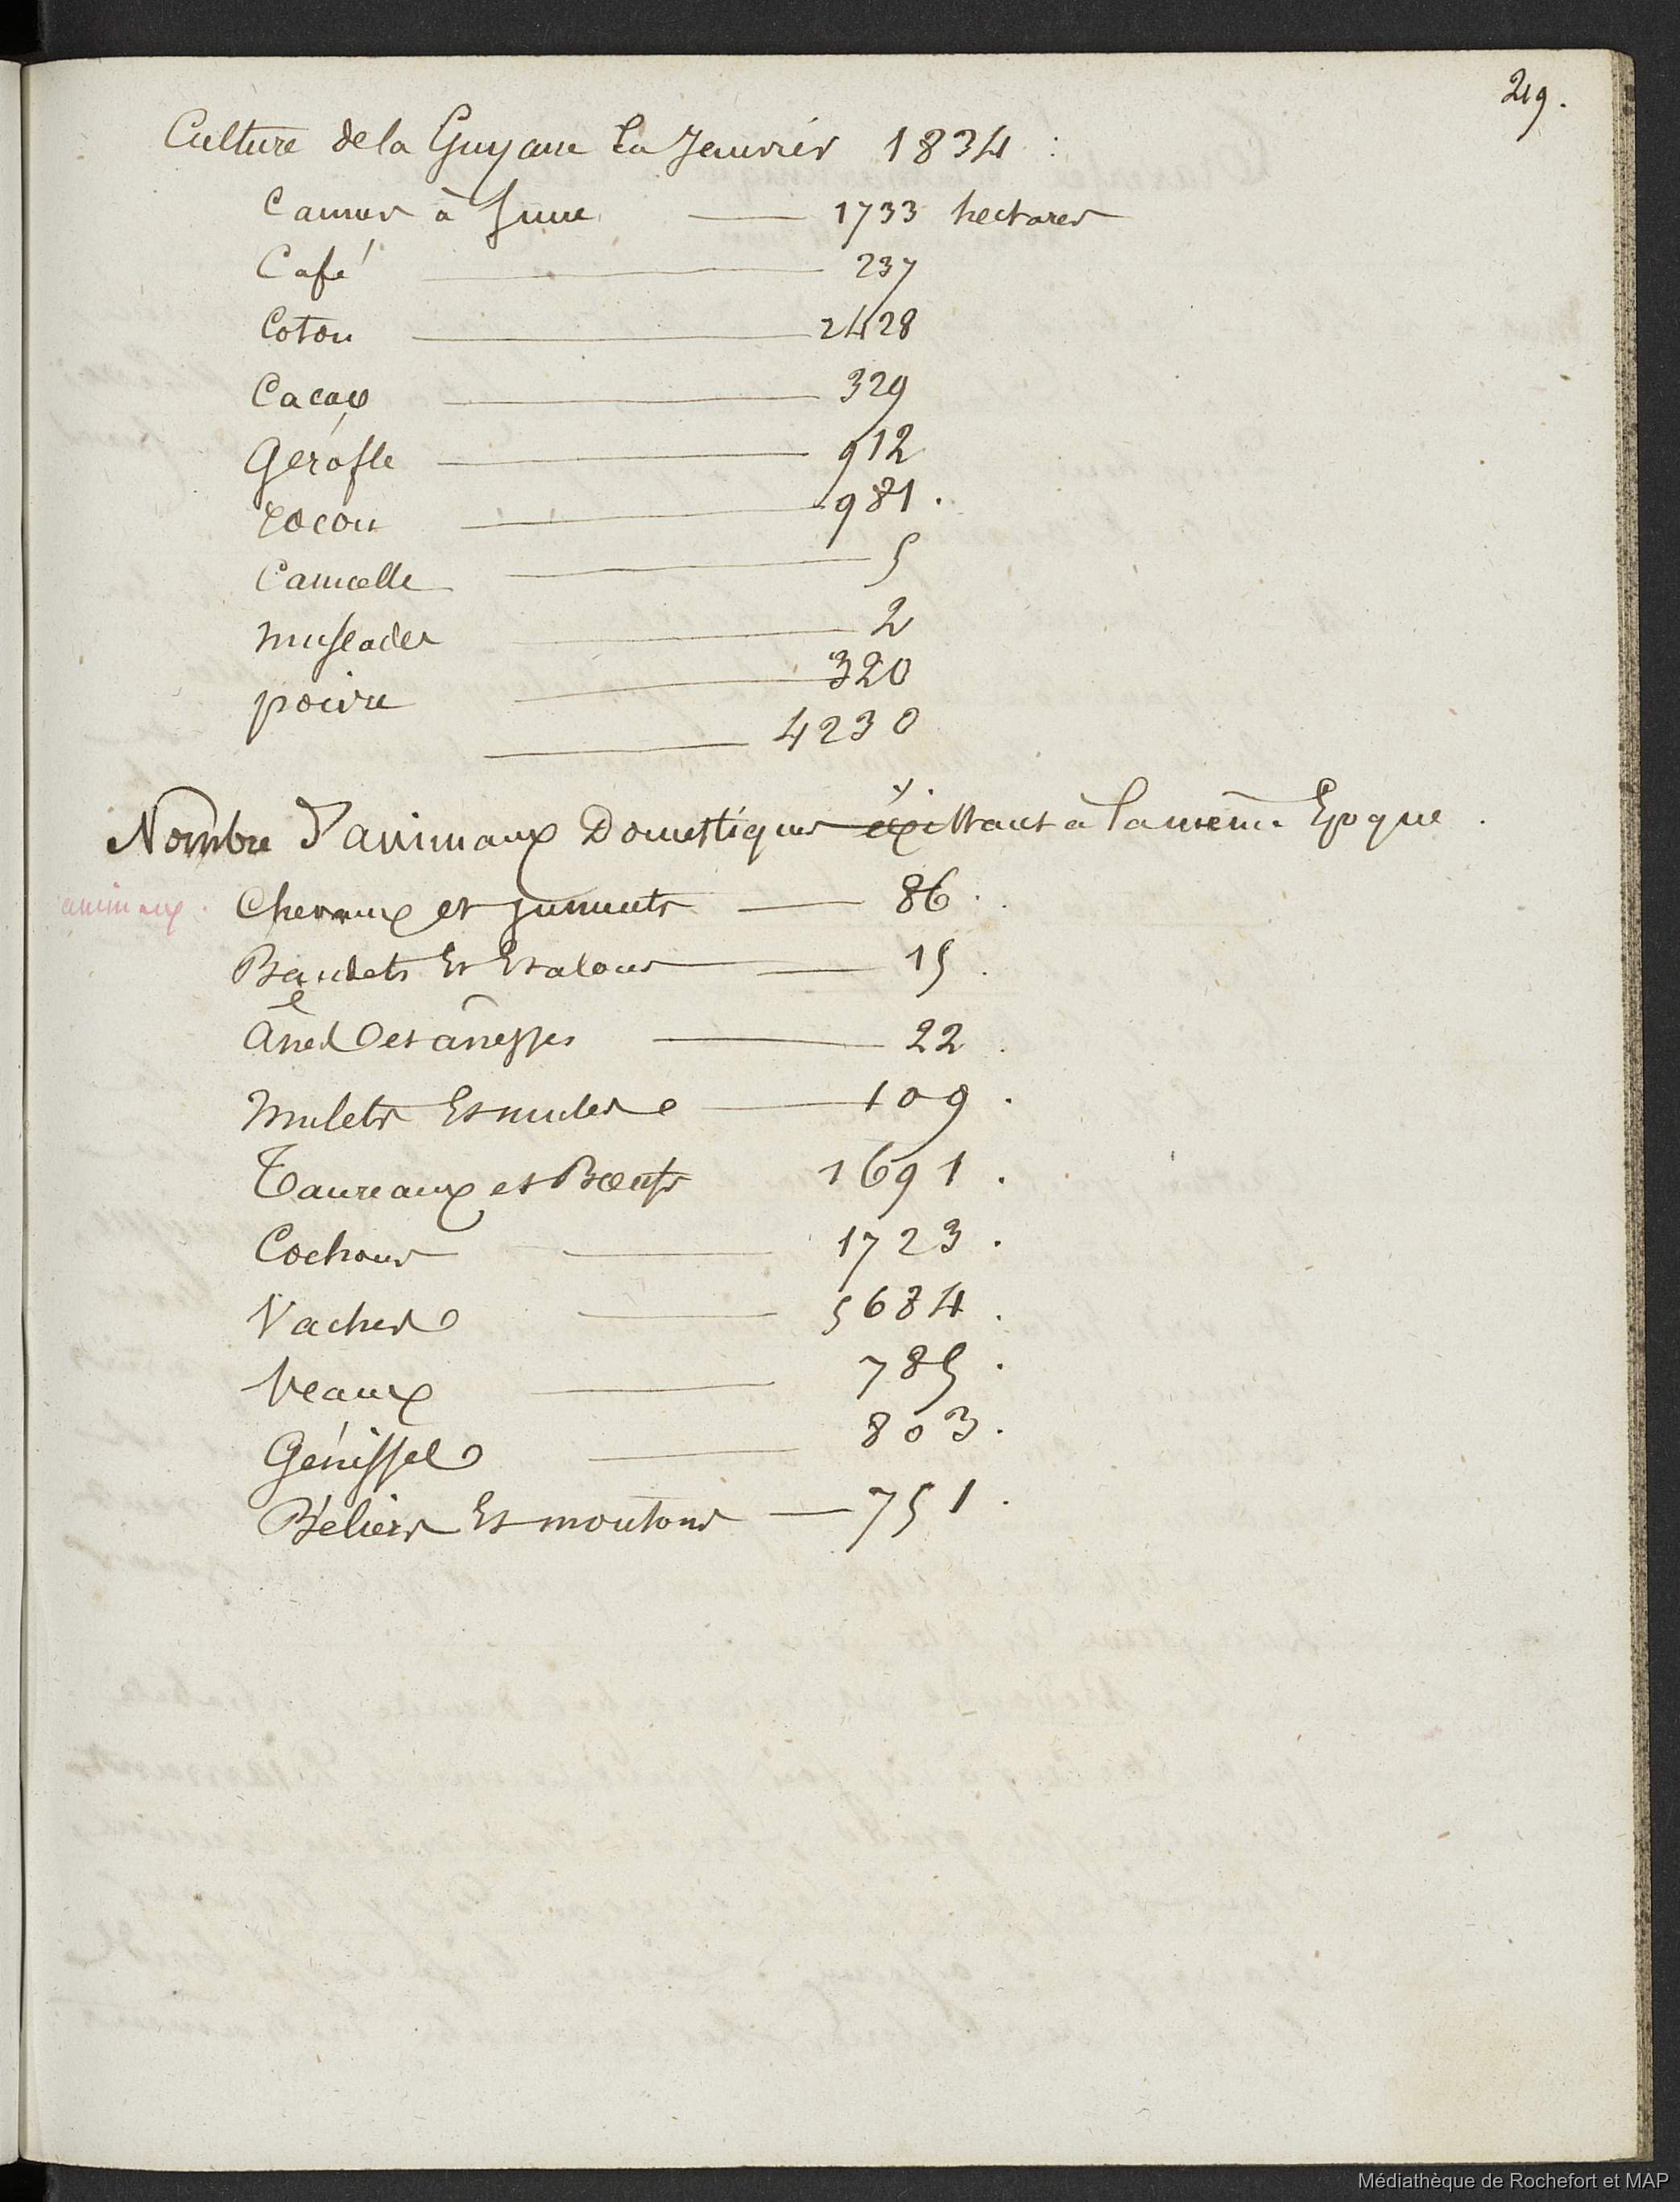 219.
Culture de la Guyane En Janvier 1834 :
Cannes à Sucre — 1733 hectares
Café — 237
Coton — 2428
Cacao — 329
Gérofle — 912
rocou — 981.
Cannelle — 5
muscades — 2
poivre — 320
— 4230
Nombre d'animaux Domestiques éxistants à la même Epoque.
animaux. Chevaux et juments — 86.
Baudets Et Etalons — 15.
Anes et ânesses — 22.
Mulets Et mules — 109.
Taureaux et Bœufs 1691.
Cochons — 1723.
Vaches — 5684.
Veaux — 785.
Génisses — 803.
Béliers Et moutons — 751.
Médiathèque de Rochefort et MAP